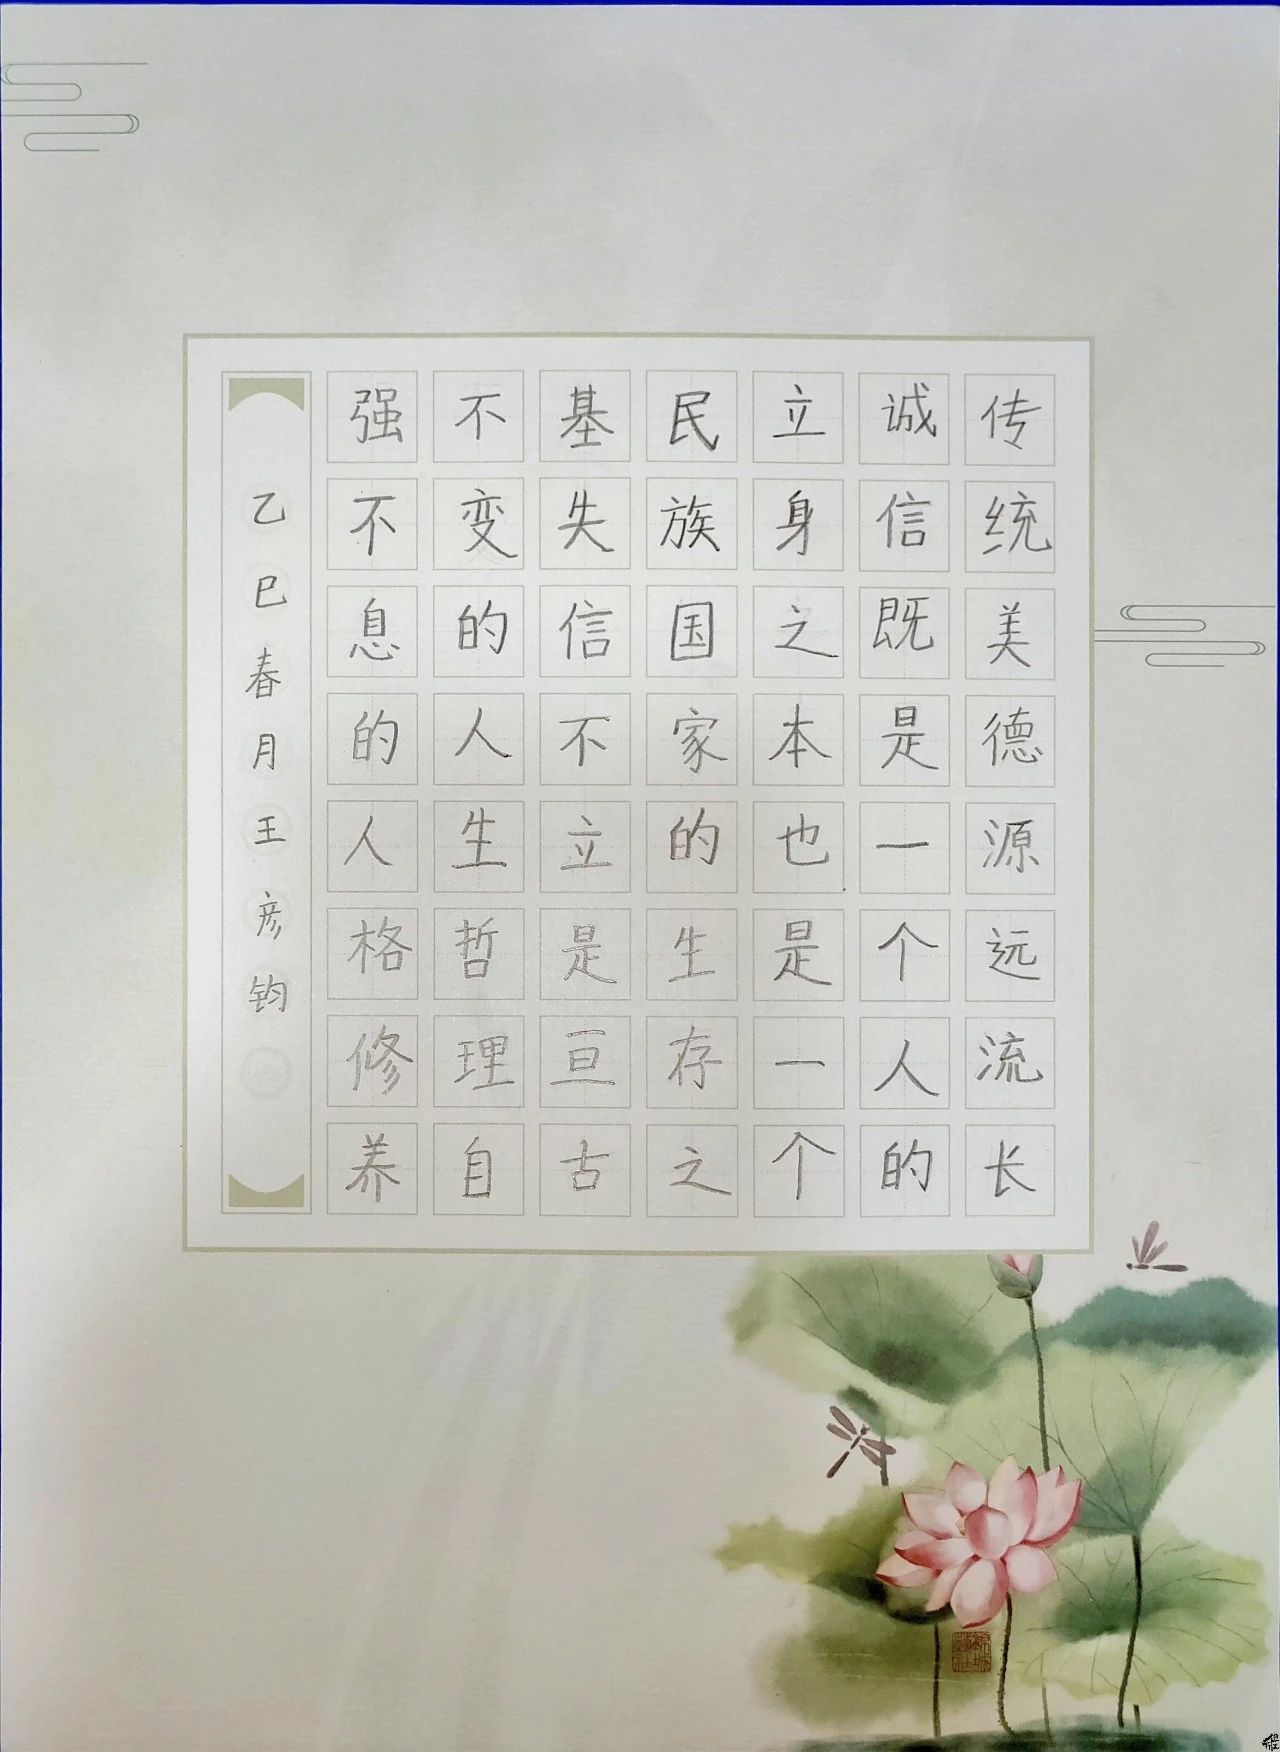 传统美德源远流长
诚信既是一个人的
立身之本也是一个
民族国家的生存之
基失信不立是亘古
不变的人生哲理自
强不息的人格修养
乙巳春月王彦钧